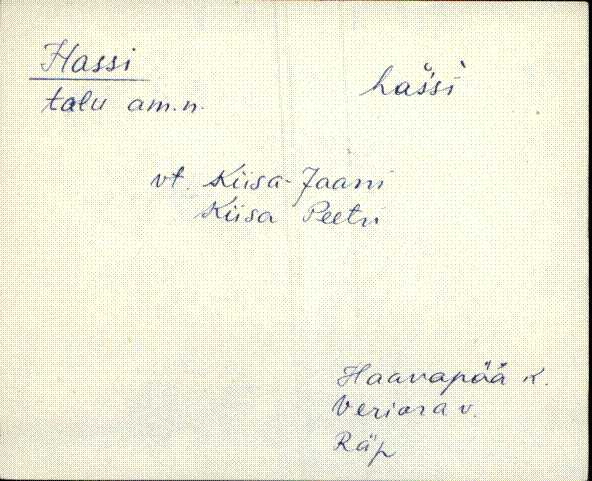 Hassi
talu am.n.
hašši
vt. Kiisa-Jaani
Kiisa Peetri
Haavapää k.
Veriora v.
Räp